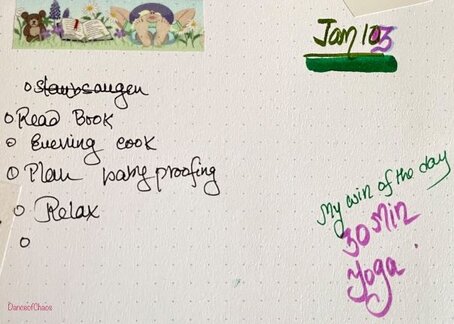 Jan 13
staubsaugen
Read Book
Evening cook
Plan baby proofing
Relax
My win of the day
30 Min
Yoga.
DanceofChaos